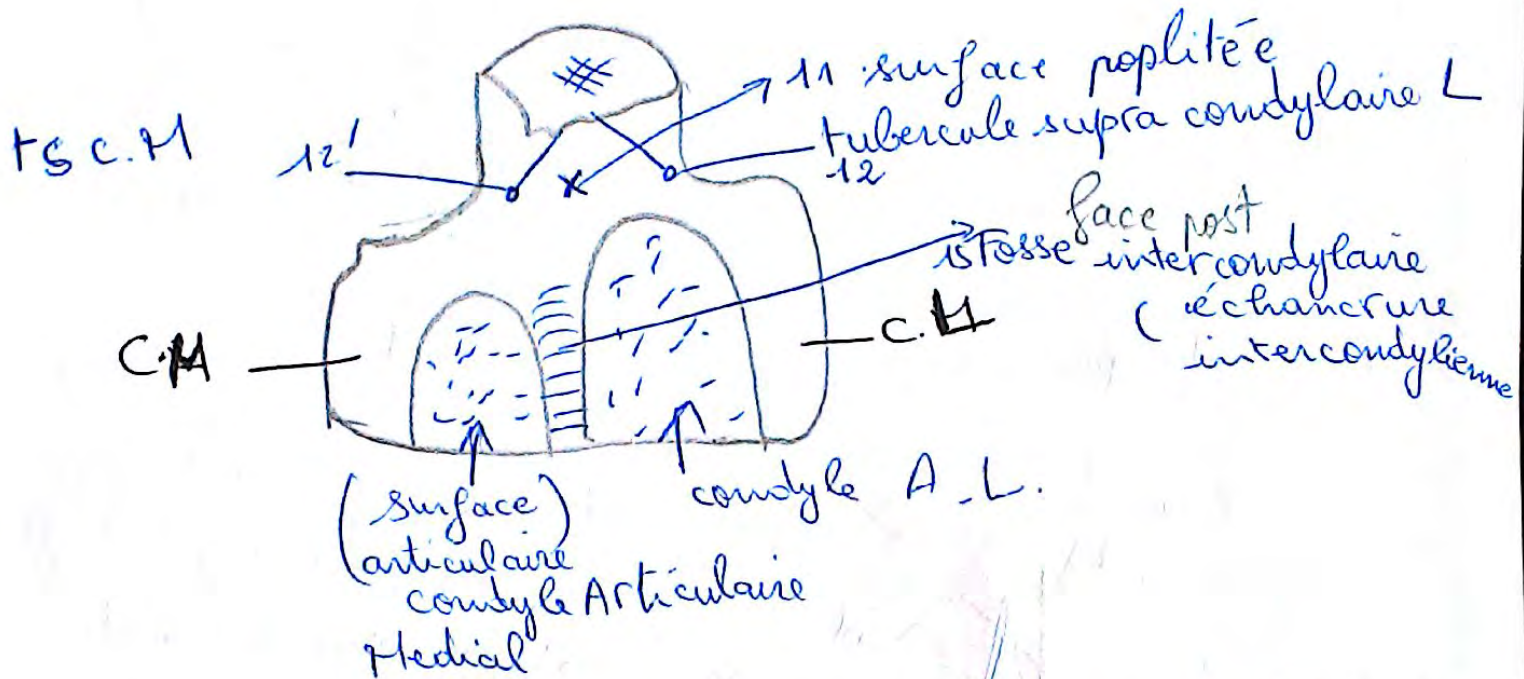 11 surface poplitée
tubercule supra condylaire L
12
t s c.M
12'
face post
15 Fosse intercondylaire
( échancrure
intercondylienne
C.M
(surface)
articulaire
condyle Articulaire
Medial
condyle A-L.